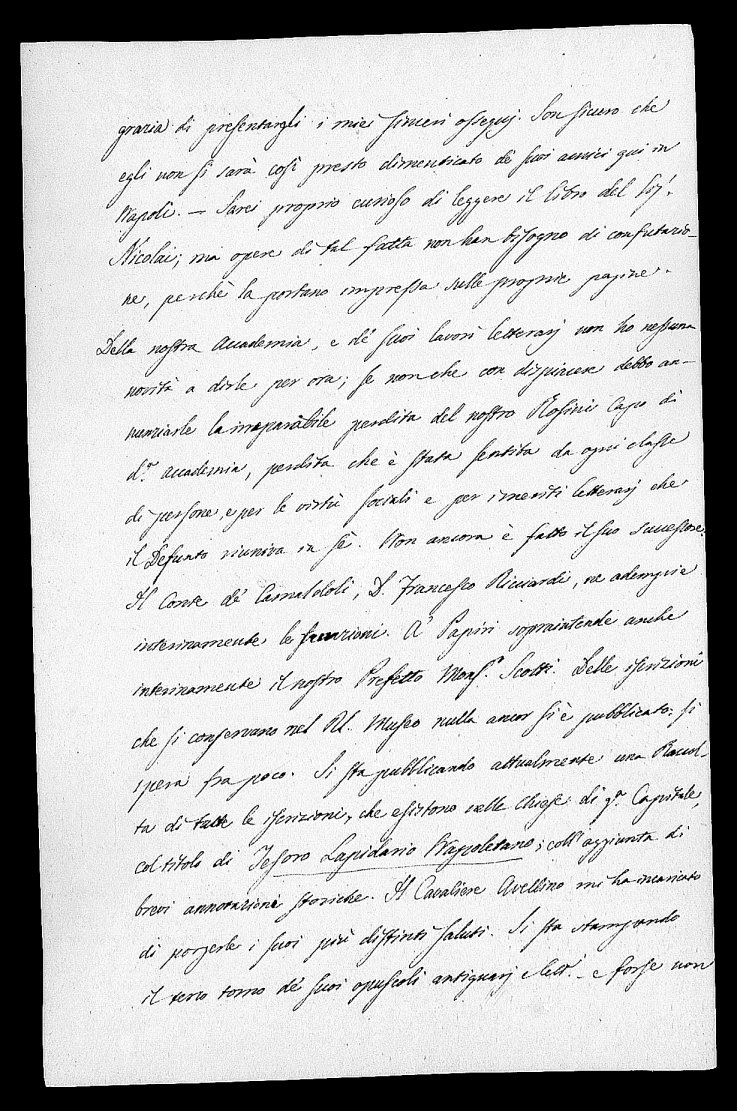 grazia di presentargli i miei sinceri ossequj. Son sicuro che
egli non si sarà così presto dimenticato de' suoi amici quì in
Napoli. — Sarei proprio curioso di leggere il libro del Sig.r
Nicolai; ma opere di tal fatta non han bisogno di confutazio-
ne, perchè la portano impressa sulle proprie pagine.
Della nostra Accademia, e de' suoi lavori letterarj non ho nessuna
novità a dirle per ora; se non che con dispiacere debbo an-
nunziarle la irreparabile perdita del nostro Rosini Capo di
d.a Accademia, perdita che è stata sentita da ogni classe
di persone, e per le virtù sociali e per i meriti letterarj che
il Defunto riuniva in sè. Non ancora è fatto il suo successore.
Il Conte de' Camaldoli, D. Francesco Ricciardi, ne adempie
interinamente le funzioni. A' Papiri sopraintende anche
interinamente il nostro Prefetto Mons.r Scotti. Delle iscrizioni
che si conservano nel Rl. Museo nulla ancor si è pubblicato: si
spera fra poco. Si sta pubblicando attualmente una Raccol-
ta di tutte le iscrizioni, che esistono nelle Chiese di q.a Capitale,
col titolo di Tesoro Lapidario Napoletano; coll'aggiunta di
brevi annotazioni storiche. Il Cavaliere Avellino mi ha incaricato
di porgerle i suoi più distinti saluti. Si sta stampando
il terzo tomo de' suoi opuscoli antiquarj e lett. — e forse non